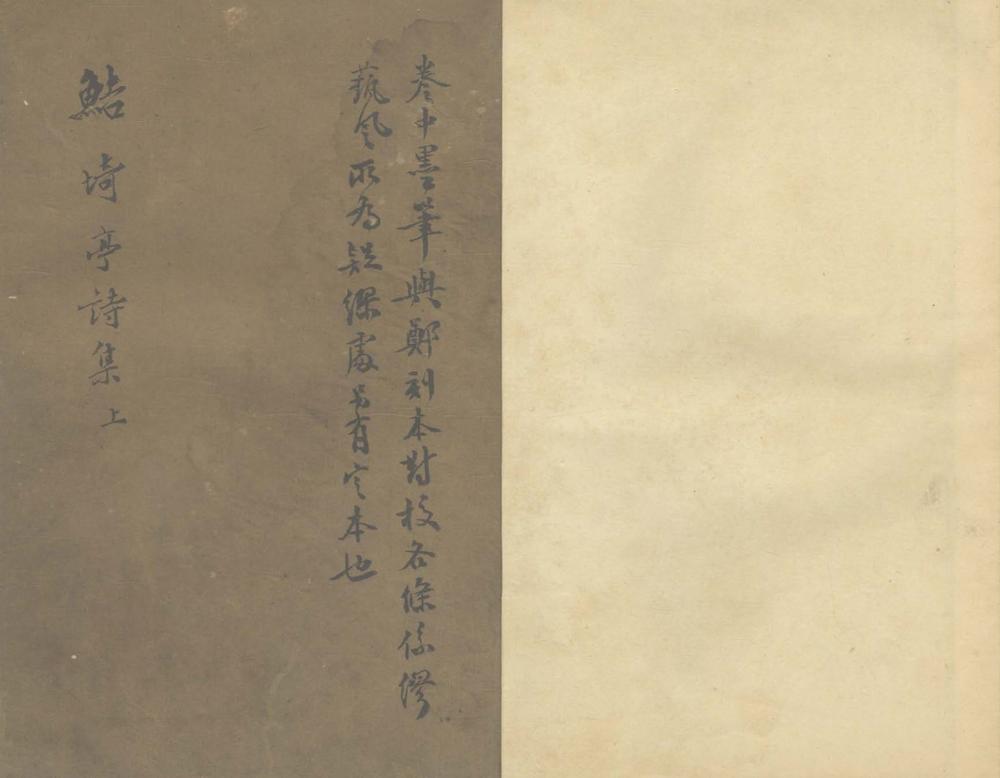 卷中墨筆與鄭刻本對校各條係繆
蓺風所為疑處另有定本也
鮚埼亭詩集 上